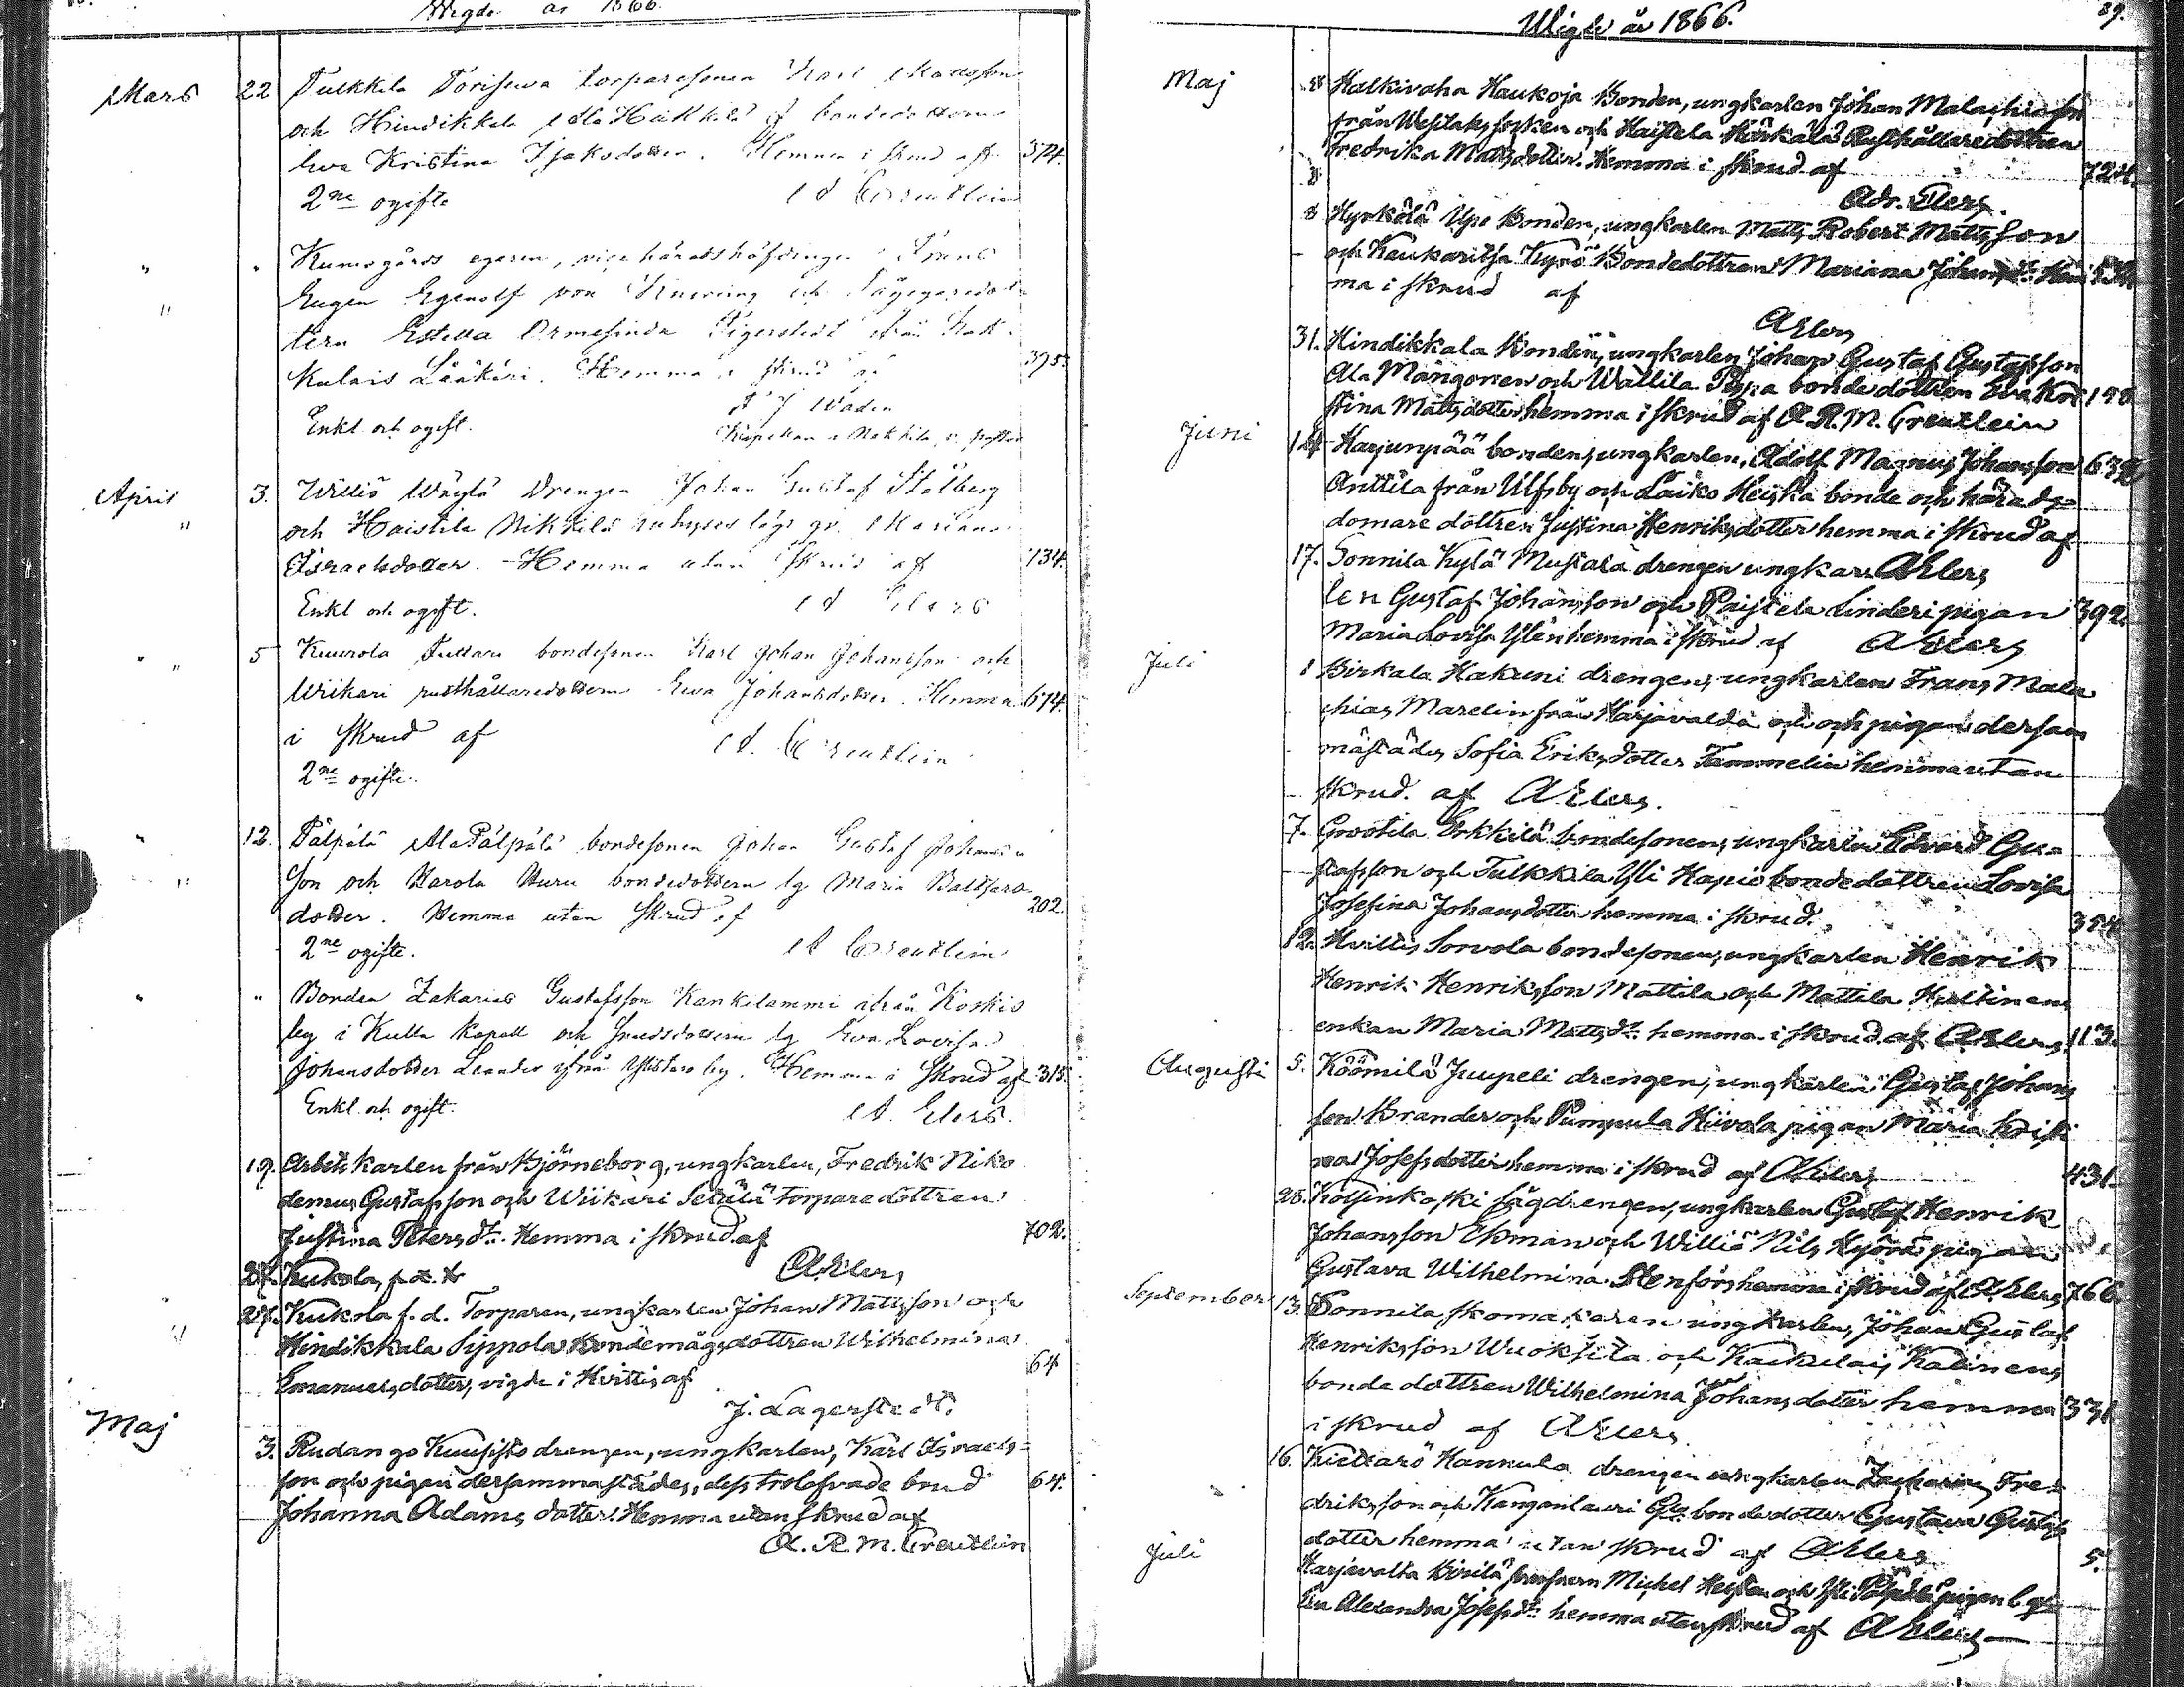 Wigde år 1866.
Mars 22 Tulkkila Torisewa torparesonen Karl Matsson
och Hindikkala Ala Heikkilä bondedottern
Ewa Kristina Isaksdotter. Hemma i skrud af 374.
2ne ogifte A Creutlein
" " Kumogårds egaren, vice häradshöfdingen Frans
" Eugen Egenolf von Knorring och Sågegaredot-
tern Estella Ormesinda Tigerstedt ifrån Kak-
kulais Lääkäri. Hemma i skrud af 395.
F J Wadén
Enkl. och ogift. Kapellan i Nakkila, v. pastor
April 3. Williö Wäylä Drengen Johan Gustaf Stålberg
" och Haistila Nikkilä inhyses lösg qv. Mariana
Israelsdotter. Hemma utan skrud af 134.
Enkl och ogift. A Elers
" " 5 Kuurola Tuttari bondesonen Karl Johan Johansson och
Wiikari rusthållaredottern Ewa Johansdotter. Hemma 674.
i skrud af A. Creutlein
2ne ogifte.
" 12. Pälpälä Ala Pälpälä bondesonen Johan Gustaf Johans-
" son och Karola Uuru bondedottern lg Maria Baltsars-
dotter. Hemma utan skrud af 202.
2ne ogifte. A Creutlein
" " Bonden Zakarias Gustafsson Kankilammi ifrån Koskis
by i Kulla Kapell och smedsdottern lg Ewa Lovisa
Johansdotter Leander ifrån Ylistaro by. Hemma i skrud af 315.
Enkl. och ogift. A. Elers.
19. Arbetskarlen från Björneborg, ungkarlen, Fredrik Niko
demus Gustafsson och Wiikari Setälä torparedottren
Justina Petersdr. Hemma i skrud af 702.
A Elers
27. Kukola, f. d.
" 27. Kukola f. d. Torparen, ungkarlen Johan Mattsson och
" Hindikkala Sippola Bondemågsdottren Wilhelmina
Emanuelsdotter, vigde i Hvittis af 64
J. Lagerstedt.
Maj 3. Rudanko Kuusisto drengen, ungkarlen, Karl Israels-
son och pigan dersammastädes, dess trolofvade brud 64.
Johanna Adamsdotter. Hemma utan skrud af
A. R. M. Creutlein
Wigde år 1866. 29.
Maj 8 Halkivaha Haukoja Bonden, ungkarlen Johan Malachiasson
från Wesilaks socken och Haistila Rusthållaredottren
Fredrika Mattsdotter. Hemma i skrud af 724.
Adr. Elers.
8 Kyrkölä Upe Bonden, ungkarlen Matts Robert Mattsson
och Kaukaritsa Kynö Bondedottren Mariana Johansdr. Hem
ma i skrud af
A Elers
31. Hindikkala Bonden, ungkarlen Johan Gustaf Gustafsson
Ala Mangonen och Wattila bondedottren Ewa Kri
stina Mattsdotter hemma i skrud af A. R. M. Creutlein
Juni 14 Harjunpää bonden, ungkarlen, Adolf Magnus Johansson 632
Anttila från Ulfsby och Laiko Heiska bonde och härads-
domare dottren Justina Henriksdotter hemma i skrud af
17. Sonnila Kylä Mustala drengen ungkar A Elers
len Gustaf Johansson och Paistila Linderi pigan 392.
Maria Lovisa Ylén hemma i skrud af A Elers
Juli 1 Birkala Hakuni drengen, ungkarlen Frans Mala
chias Marelin från Harjavalda och pigan dersam
mastädes Sofia Eriksdotter Tammelin hemma utan
skrud. af A Elers.
7. Grootila Erkkilä bondesonen, ungkarlen Edvard Gu-
stafsson och Tulkkila Yli Kapio bondedottren Lovisa
Josefina Johansdotter hemma i skrud. 354
12. Hvittis Sorvola bondesonen, ungkarlen Henrik
Henrik Henriksson Mattila och Mattila Huttinen
enkan Maria Mattsdr. hemma i skrud af A Elers. 113.
Augusti 5. Köömilä Juupeli drengen, ungkarlen Gustaf Johans
son Brander och Pumpula Hiivola pigan Maria Kristi
na Josefsdotter hemma i skrud af A Elers 431.
26. Kolsinkoski sågdrengen, ungkarlen Gustaf Henrik
Johansson Ekman och Williö Nils Kyörä pigan
Gustava Wilhelmina Stenfors hemma i skrud af A Elers 766.
September 13. Sonnila, skomakaren ungkarlen, Johan Gustaf
Henriksson Wuoksila och Kackulais Katinens
bonde dottren Wilhelmina Johansdotter hemma 331
i skrud af A Elers.
16. Kiettarö Hannula drengen ungkarlen Zacharias Fre-
driksson och Kanganlauri bondedotter Gustava Gustafs
dotter hemma utan skrud af A Elers 5.
Juli Harjavalta Birilä Michel och Yli Pälpälä pigan
Alexandra Josefsdr. hemma utan skrud af A Elers